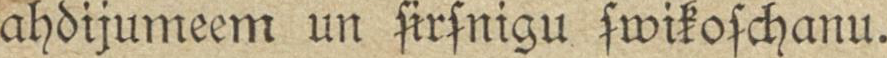 ahdijumeem un ſirſnigu ſwikoſchanu.